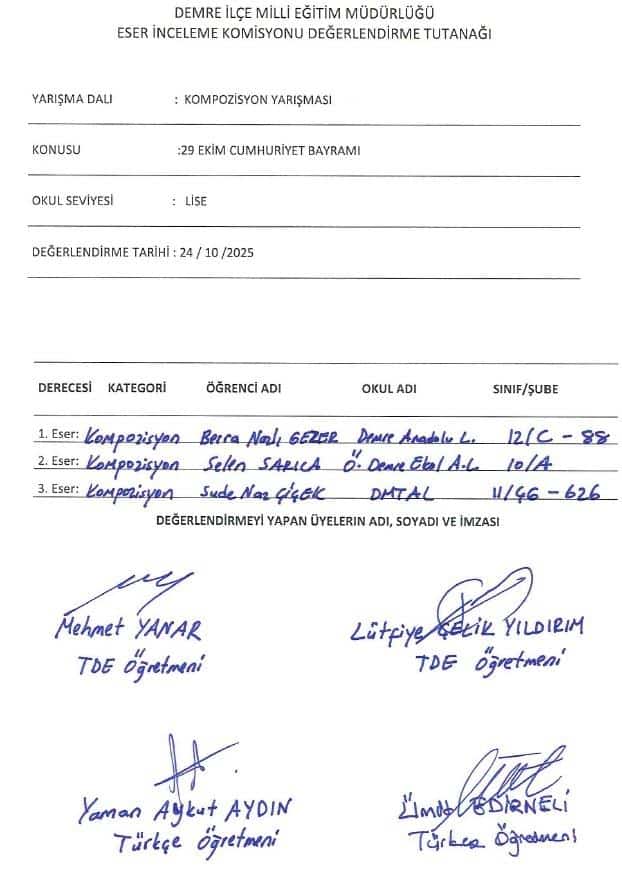 DEMRE İLÇE MİLLİ EĞİTİM MÜDÜRLÜĞÜ
ESER İNCELEME KOMİSYONU DEĞERLENDİRME TUTANAĞI
YARIŞMA DALI : KOMPOZİSYON YARIŞMASI
KONUSU :29 EKİM CUMHURİYET BAYRAMI
OKUL SEVİYESİ : LİSE
DEĞERLENDİRME TARİHİ : 24 / 10 /2025
DERECESİ KATEGORİ ÖĞRENCİ ADI OKUL ADI SINIF/ŞUBE
1. Eser: Kompozisyon Berra Nazlı GEZER Demre Anadolu L. 12/C - 88
2. Eser: Kompozisyon Selen SARICA Ö. Demre Ekol A.L 10/A
3. Eser: Kompozisyon Sude Naz ÇİÇEK DMTAL 11/ÇG - 626
DEĞERLENDİRMEYİ YAPAN ÜYELERİN ADI, SOYADI VE İMZASI
Mehmet YANAR Lütfiye ÇELİK YILDIRIM
TDE Öğretmeni TDE Öğretmeni
Yaman Aykut AYDIN Ümit EDİRNELİ
Türkçe Öğretmeni Türkçe Öğretmeni